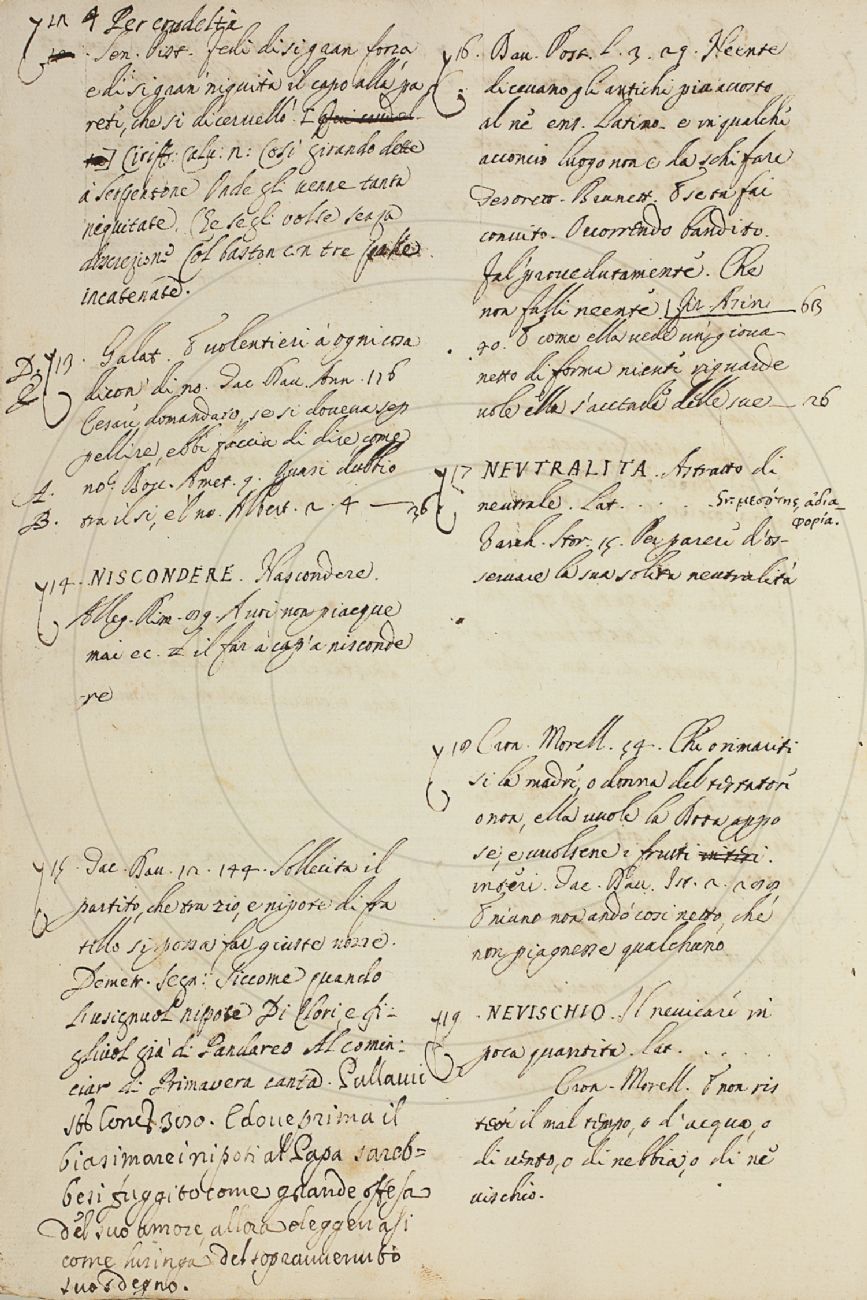 12 ¶ Per crudeltà
Sen. Pist. Fedi di si gran forza
e di si gran niquità il capo alla pa
reti, che si dicervellò. [
Ciriff. Calv: n: Così girando dette
à Serpentone Onde gli venne tanta
niquitate. Che se gli volse senza
discrezione Col baston con tre palle
incatenate.
D. 13. Galat. E volentieri à ogni cosa
E. dicon' di no. Tac Dav. Ann. 116
Cesare, domandato, se si doveva sep
pellire, ebbe faccia di dire come
A. no. Bocc. Amet. 9. Quasi dubbio
B. tra il si, e'l no. Albert. 2. 4 — 36
14. NISCONDERE. Nascondere.
Alleg. Rim. 219. A voi non piacque
mai ec. il far à cap'a nisconde
re
15. Tac. Dav. 12. 144. Sollecita il
partito, che tra zio, e nipote di fra
tello si possa far giuste nozze.
Demetr. Segn: Siccome quando
Lusignuol nipote Di Clori, e fi-
gliuol già di Pandareo Al comin-
ciar di Primavera canta. Pallavic
Stor. Conc. 320. E dove prima il
biasimare i nipoti al Papa sareb-
besi fuggito come grande offesa
del suo amore, allora eleggevasi
come lusinga del sopravvenuto
suo sdegno.
16. Dav. Post. L. 3. 29. Neente
dicevano gli antichi più accosto
al ne ens. Latino. e in qualche
acconcio luogo non è da schifare
Tesorett. Brunett. E se tu fai
convito. O corrredo bandito.
Fal provedutamente. Che
non falli neente | Fir. Asin — 63
40. E come ella vede un giova-
netto di forma niente riguarde
vole ella s'accende delle sue — 26
17 NEVTRALITA. Astratto di
neutrale. Lat. . . . Gr. μεσότης, ἀδια-
φορία.
Varch. Stor. 15. Per parere d'os-
servare la sua solita neutralità
18 Cron. Morell. 54. Che o rimariti
si la madre, o donna del testatore
o non, ella vuole la Dota appo
se, e vuolsene i frutti
interi. Tac. Dav. Ist. 2. 289
E niano non andò così netto, che
non piagnesse qualcheuno
19. NEVISCHIO. Il nevicare in
poca quantità. Lat. . . . .
Cron. Morell. E non ris
tette il mal tempo, o d'acqua, o
di vento, o di nebbia, o di ne
vischio.